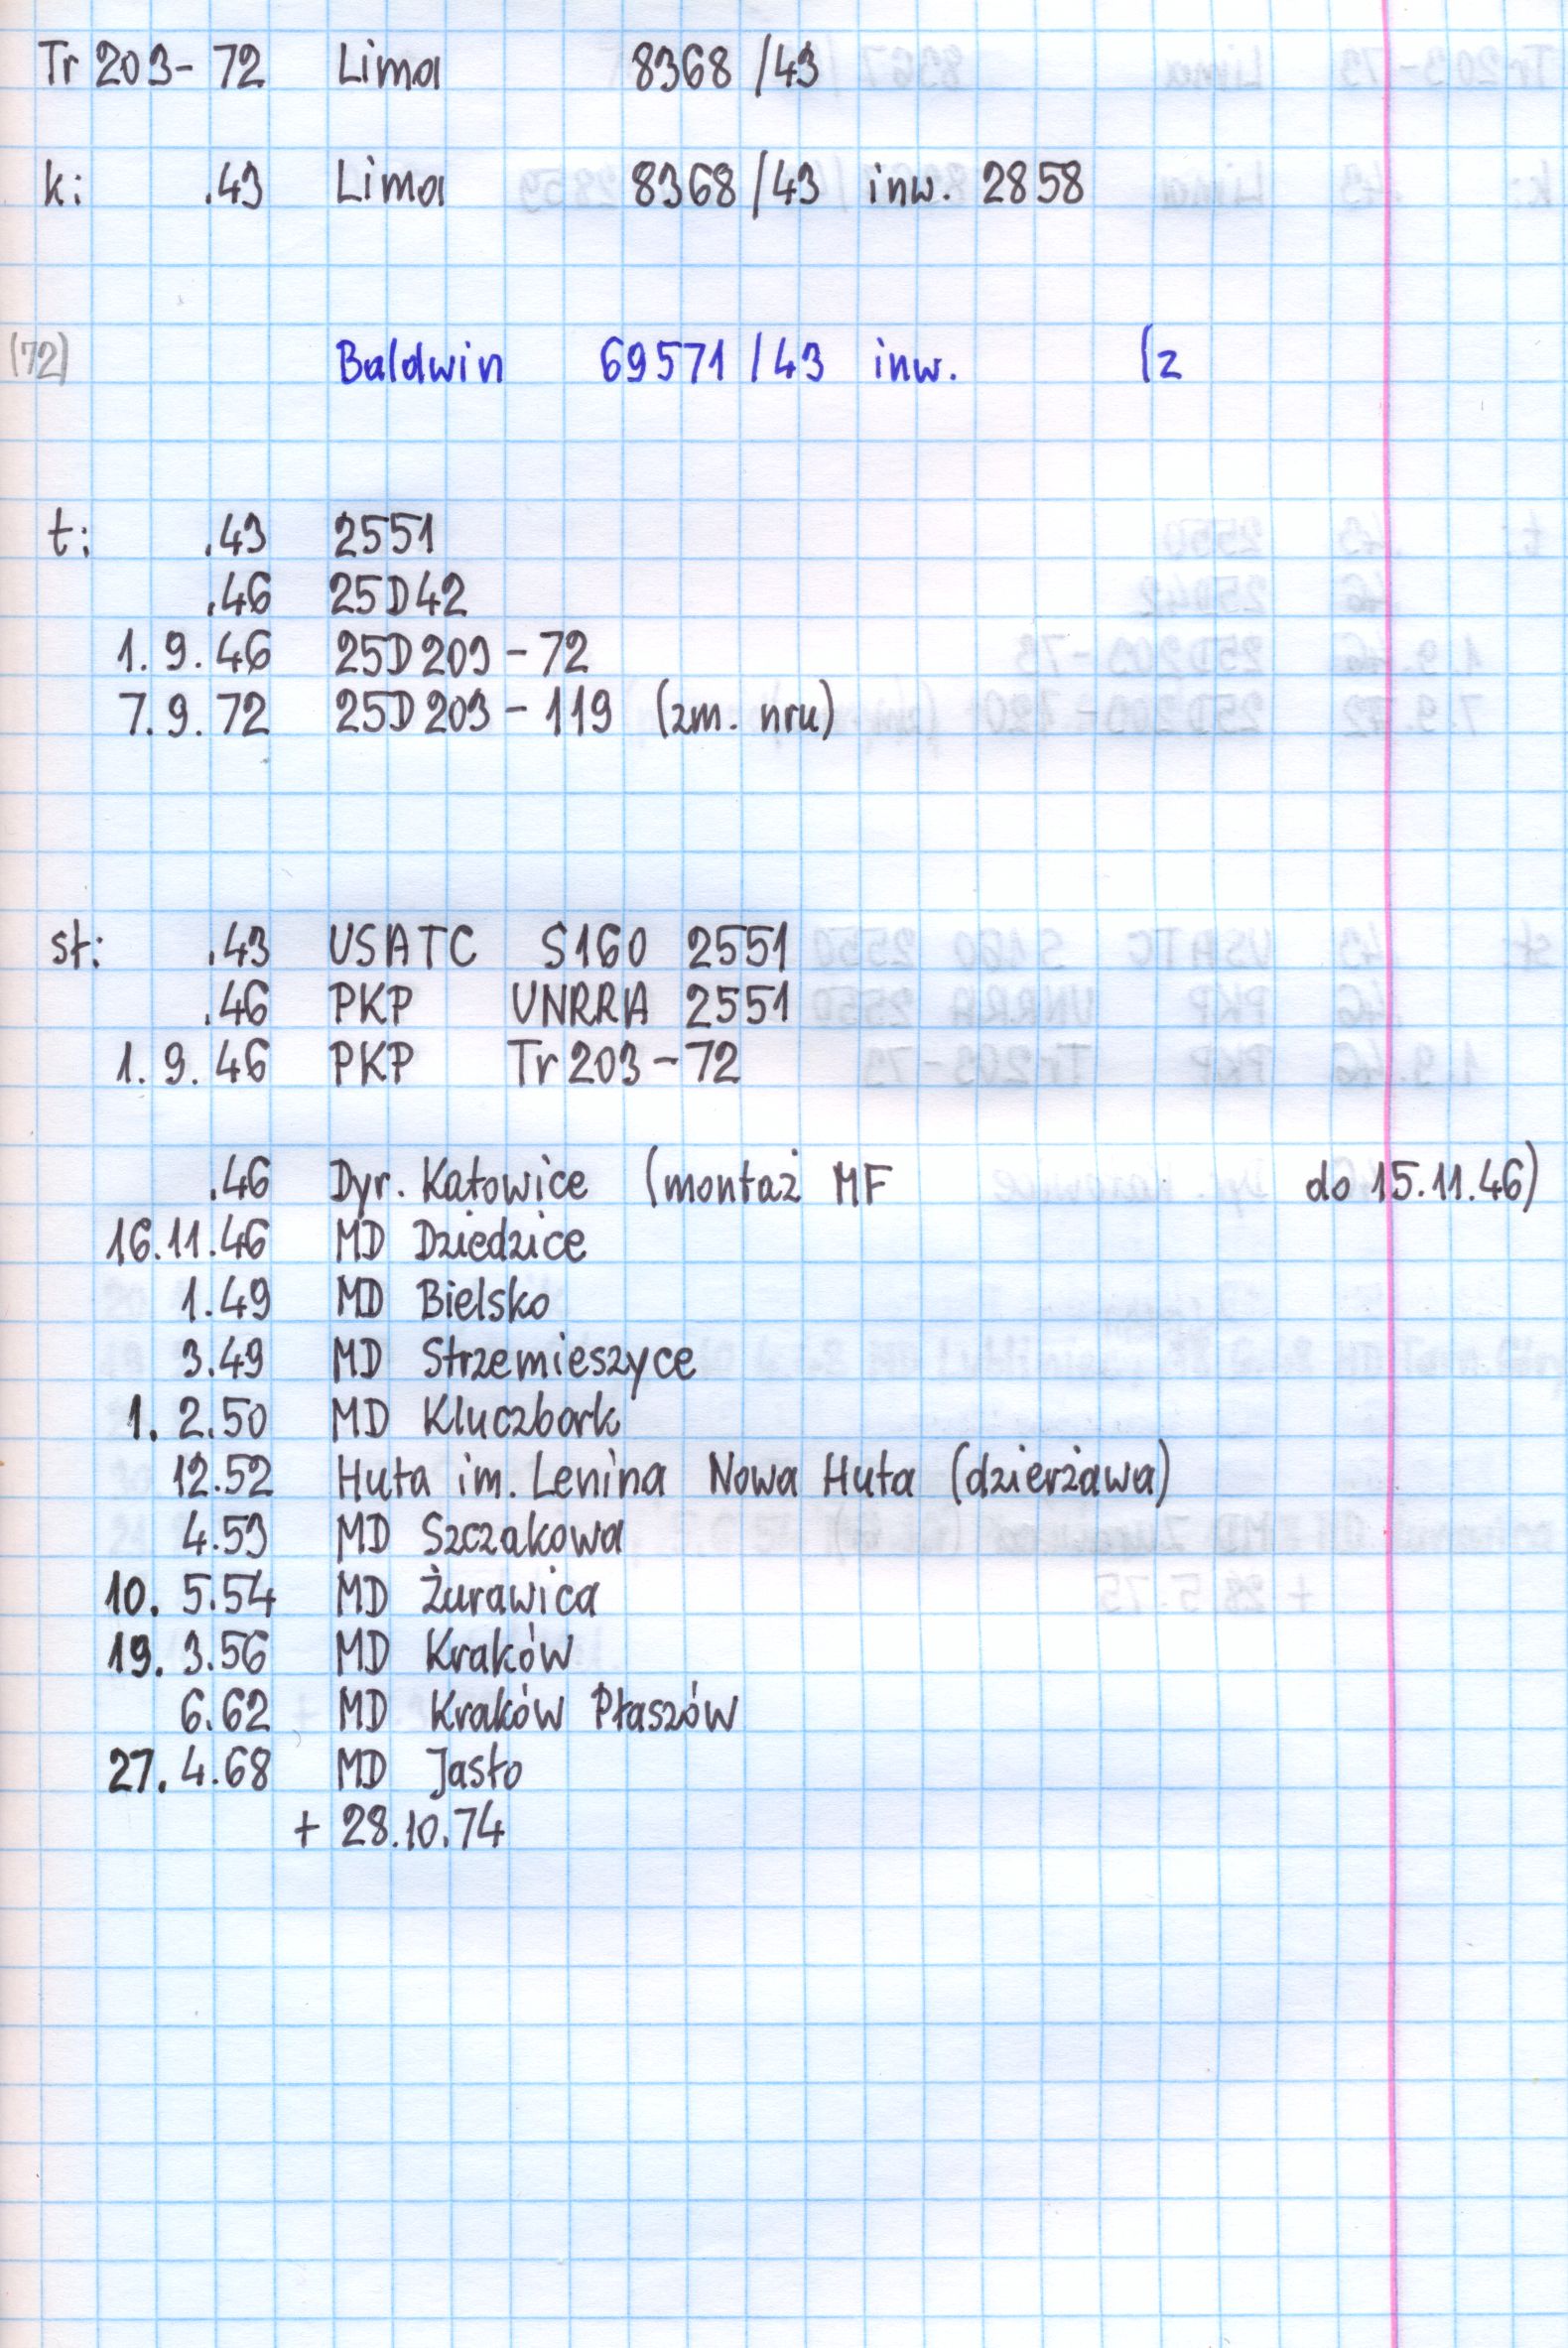 Tr 203-72 Lima 8368/43
k: .43 Lima 8368/43 inw. 2858
(72) Baldwin 69571/43 inw. (z
t: .43 2551
.46 25D42
1.9.46 25D203-72
7.9.72 25D203-119 (zm. nru)
st: .43 USATC S160 2551
.46 PKP UNRRA 2551
1.9.46 PKP Tr 203-72
.46 Dyr. Katowice (montaż MF do 15.11.46)
16.11.46 MD Dziedzice
1.49 MD Bielsko
3.49 MD Strzemieszyce
1. 2.50 MD Kluczbork
12.52 Huta im. Lenina Nowa Huta (dzierżawa)
4.53 MD Szczakowa
10. 5.54 MD Żurawica
19. 3.56 MD Kraków
6.62 MD Kraków Płaszów
27. 4.68 MD Jasło
+ 28.10.74